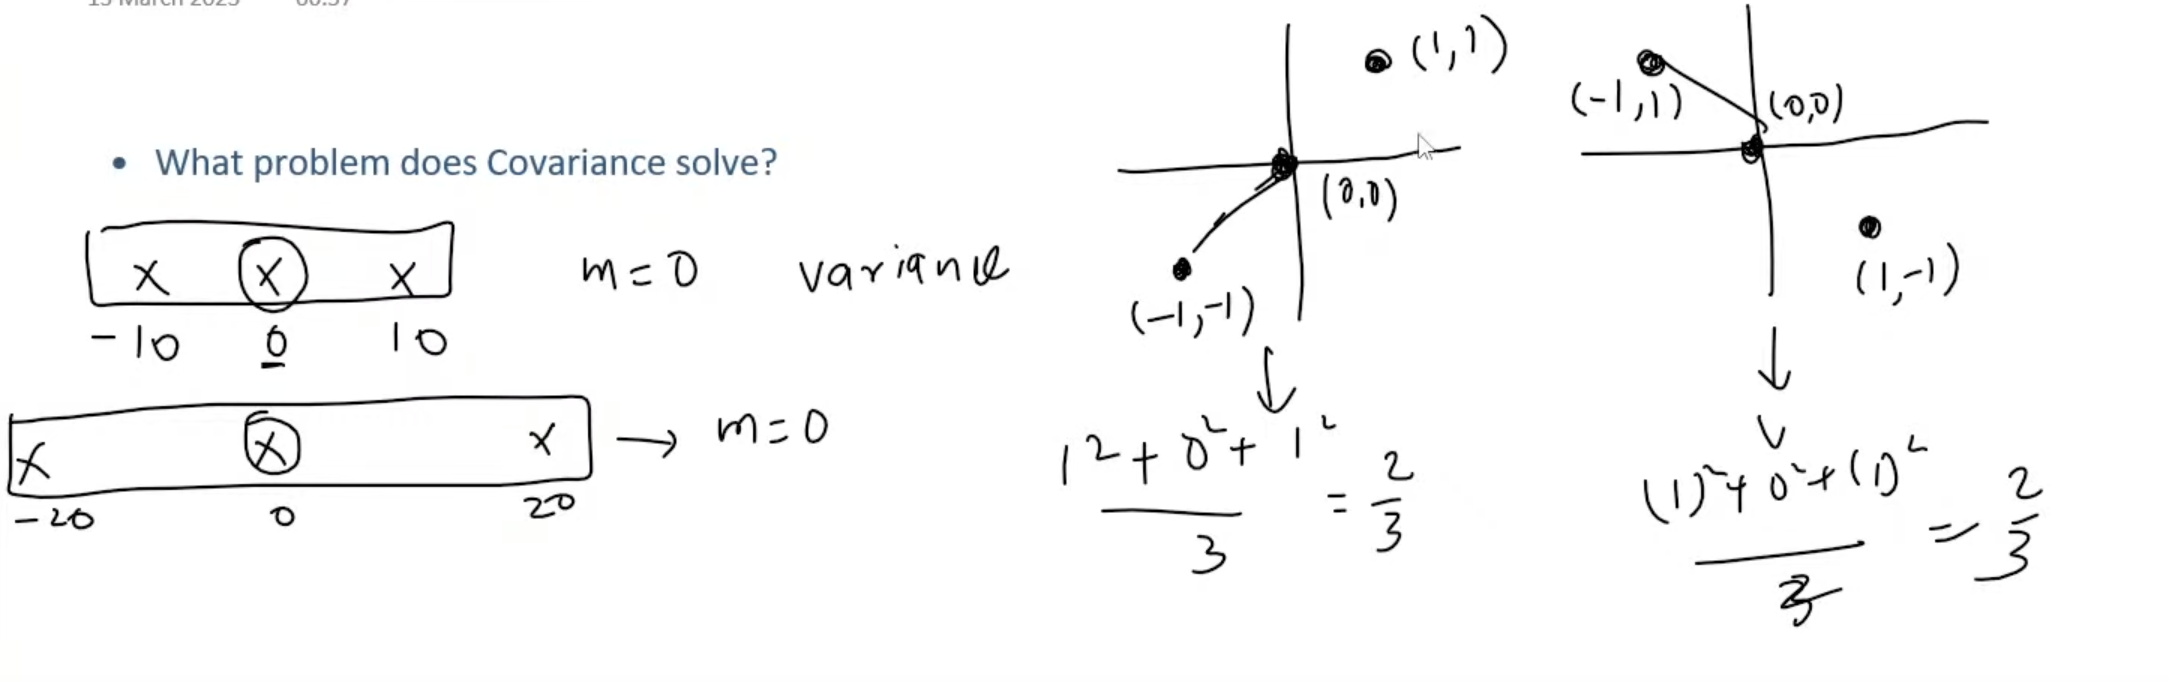 • What problem does Covariance solve?
x x x
-10 0 10
m=0 variance
x x x → m=0
-20 0 20
(1,1)
(0,0)
(-1,-1)
↓
1²+0²+1²
3
= 2
3
(-1,1)
(0,0)
(1,-1)
↓
(1)²+0²+(1)²
3
= 2
3